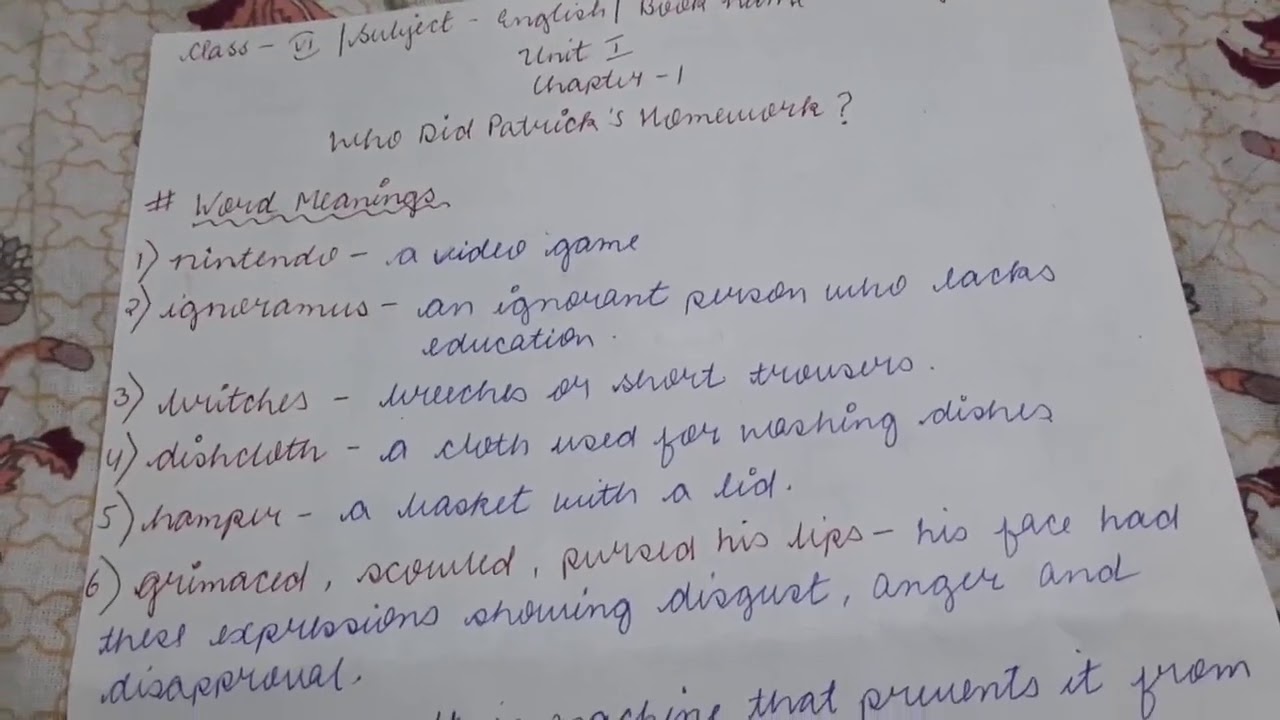 Class - VI | Subject - English | Book
Unit I
Chapter - 1
Who Did Patrick's Homework?
# Word Meanings
1) nintendo - a video game
2) ignoramus - an ignorant person who lacks
education.
3) britches - breeches or short trousers.
4) dishcloth - a cloth used for washing dishes
5) hamper - a basket with a lid.
6) grimaced, scowled, pursed his lips - his face had
these expressions showing disgust, anger and
disapproval.
machine that prevents it from